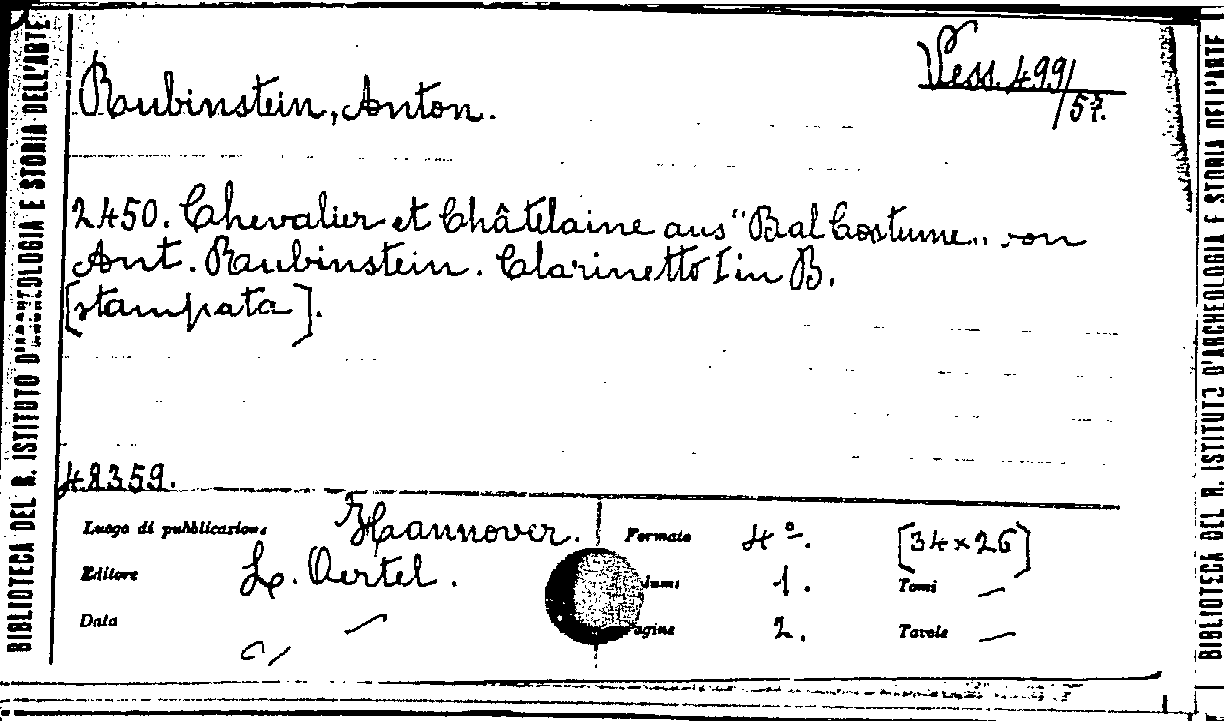 BIBLIOTECA DEL R. ISTITUTO D'ARCHEOLOGIA E STORIA DELL'ARTE
Vess. 499/57.
Rubinstein, Anton.
2450. Chevalier et Châtelaine aus "Bal Costume„ von
Ant. Rubinstein. Clarinetto I in B.
[stampata].
48359.
Luogo di pubblicazione Hannover. Formato 4º. [34×26]
Editore L. Oertel. 1. Tomi —
Data — Pagine 2. Tavole —
BIBLIOTECA DEL R. ISTITUTO D'ARCHEOLOGIA E STORIA DELL'ARTE